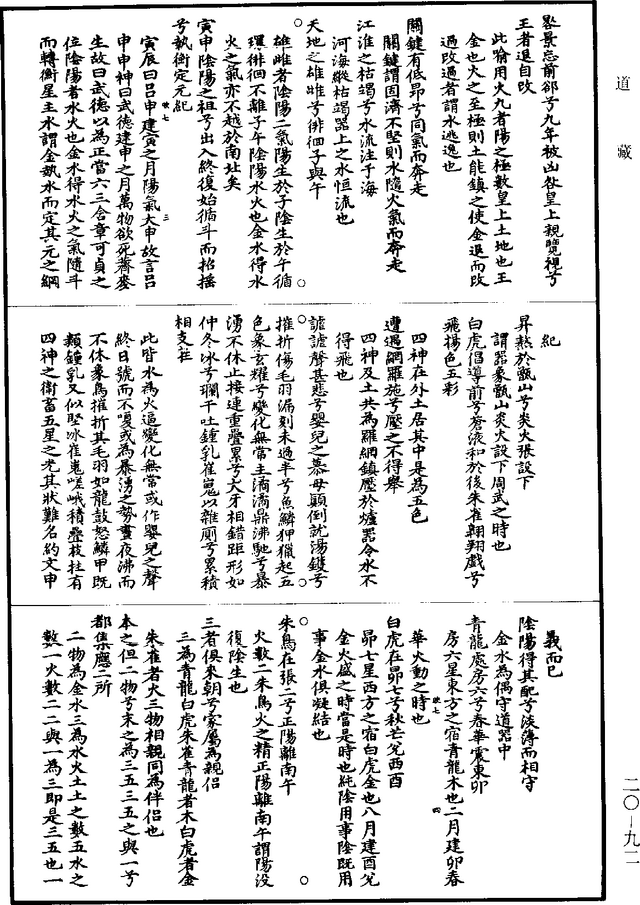 道藏
晷景忘前郤兮九年被凶咎皇上親覽視兮
王者退自改
此喻用火九者陽之極數皇上土地也王
金也火之至極則土能鎮之使金退而改
過改過者謂水逃逸也
關鍵有低昂兮同氣而奔走
關鍵謂固濟不堅則水隨火氣而奔走
江淮之枯竭兮水流注于海
河海縱枯竭器上之水恒流也
天地之雄雌兮徘徊子與午
雄雌者陰陽二氣陽生於子陰生於午循
環徘徊不離子午陰陽水火也金水得水
火之氣亦不越於南北矣
寅申陰陽之祖兮出入終復始循斗而招搖
兮執衡定元紀
寅辰曰吕申建寅之月陽氣大申故言吕
申申神曰武德建申之月萬物欲死薺麥
生故曰武德以為正當六三含章可貞之
位陰陽者水火也金水得水火之氣隨斗
而轉衡星主水謂金執水而定其元之綱
紀
昇熬於甑山兮炎火張設下
謂器象甑山炎火設下周武之時也
白虎倡導前兮蒼液和於後朱雀翱翔戲兮
飛揚色五彩
四神在外土居其中是為五色
遭遇網羅施兮壓之不得舉
四神及土共為羅網鎮壓於爐器令水不
得飛也
謔謔聲甚悲兮嬰兒之慕母顛倒就湯鑊兮
摧折傷毛羽漏刻未過半兮魚鱗狎獵起五
色象玄耀兮變化無常主潏潏鼎沸馳兮暴
湧不休止接連重疊累兮犬牙相錯距形如
仲冬冰兮瓓干吐鍾乳崔嵬以雜廁兮累積
相支拄
此皆水為火逼變化無常或作嬰兒之聲
終日號而不嗄或為暴湧之勢晝夜沸而
不休象鳥摧折其毛羽如龍鼓怒鱗甲既
類鍾乳又似堅冰崔嵬嵯峨積疊枝拄有
四神之衛當五星之尤其狀難名約文申
義而已
陰陽得其配兮淡薄而相守
金水為偶守道器中
青龍處房六兮春華震東卯
房六星東方之宿青龍木也二月建卯春
華火動之時也
白虎在昴七兮秋芒兌西酉
昴七星西方之宿白虎金也八月建酉兌
金火盛之時當是時也純陰用事陰既用
事金水俱凝結也
朱鳥在張二兮正陽離南午
火數二朱鳥火之精正陽離南午謂陽没
復陰生也
三者俱來朝兮家屬為親侶
三為青龍白虎朱雀青龍者木白虎者金
朱雀者火三物相親同為伴侶也
本之但二物兮末之為三五三五之與一兮
都集應二所
二物為金水三為水火土土之數五水之
數一火數二二與一為三即是三五也一
二〇—九二